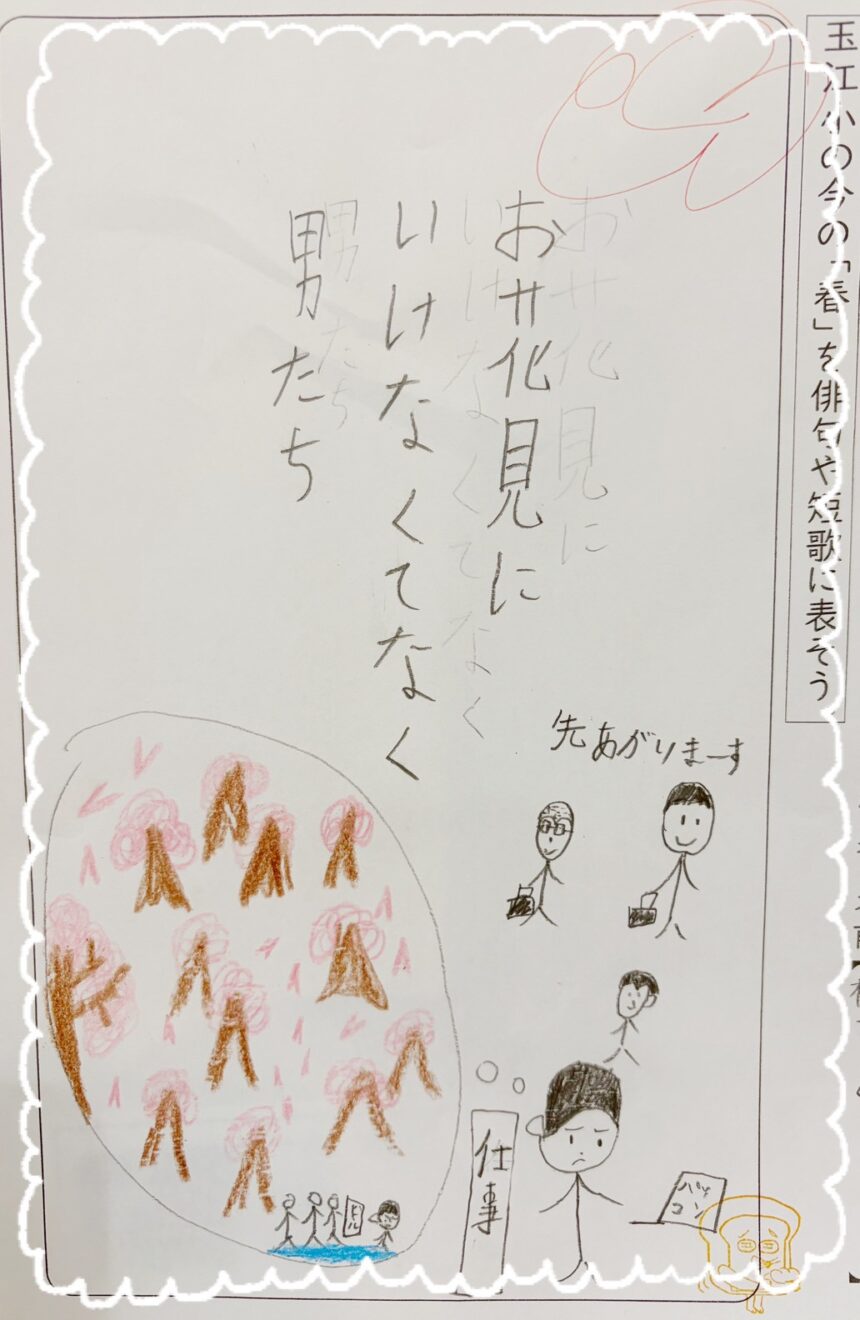 玉江小の今の「春」を俳句や短歌に表そう
お花見に
いけなくてなく
男たち
先あがりまーす
仕事
パソコン
ビール